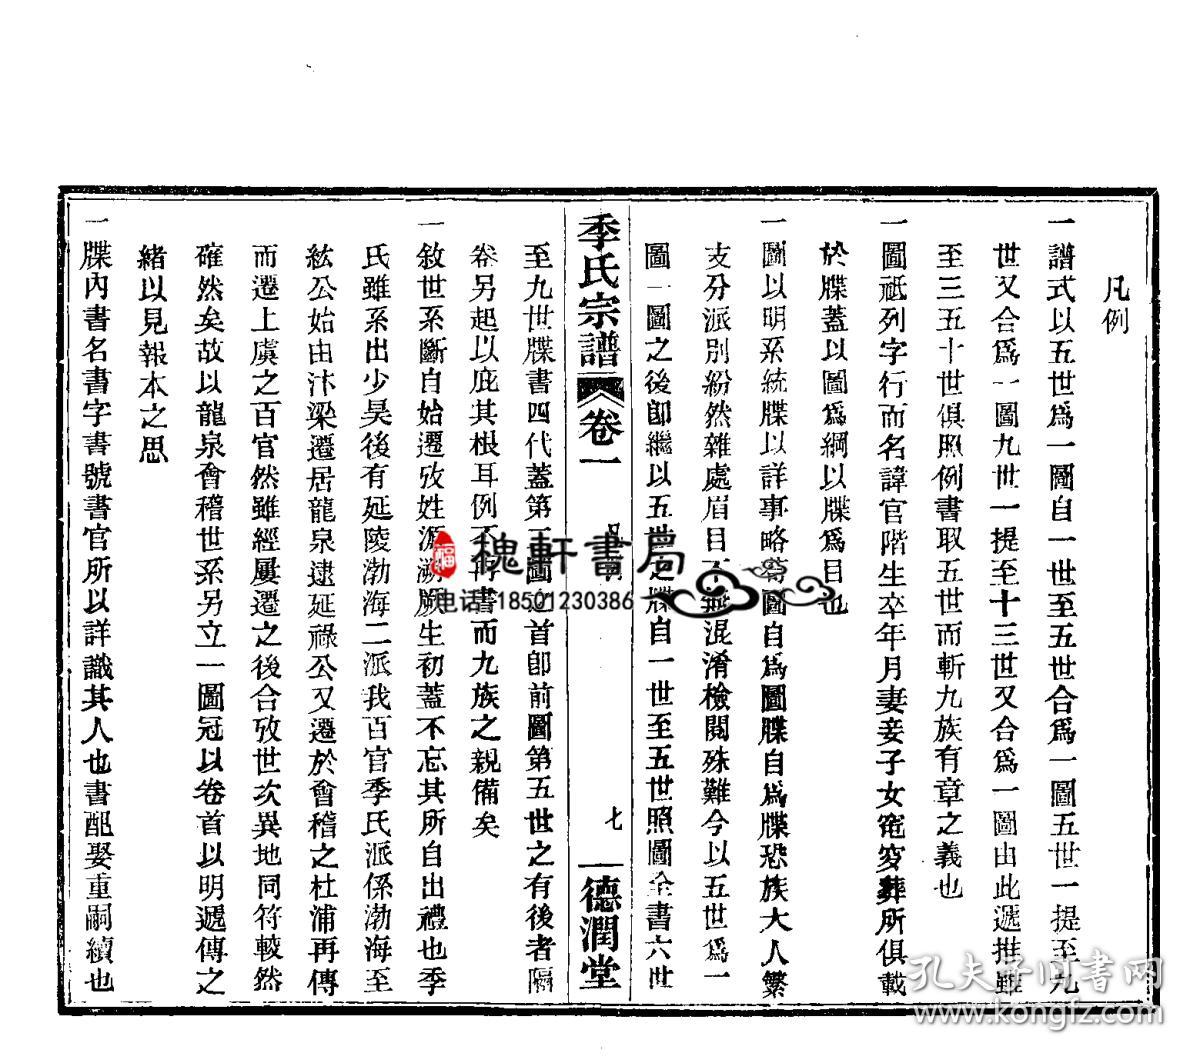 凡例
一譜式以五世爲一圖自一世至五世合爲一圖五世一提至九
世又合爲一圖九世一提至十三世又合爲一圖由此遞推雖
至三五十世俱照例書取五世而斬九族有章之義也
一圖祗列字行而名諱官階生卒年月妻妾子女窀穸葬所俱載
於牒蓋以圖爲綱以牒爲目也
一圖以明系統牒以詳事略圖自爲圖牒自爲牒恐族大人繁
支分派別紛然雜處眉目不無混淆檢閱殊難今以五世爲一
圖一圖之後卽繼以五世之牒自一世至五世照圖全書六世
季氏宗譜 卷一 凡例 七 德潤堂
至九世牒書四代蓋第二圖首卽前圖第五世之有後者隔
卷另起以庇其根耳例不再書而九族之親備矣
一敘世系斷自始遷攷姓源溯厥生初蓋不忘其所自出禮也季
氏雖系出少昊後有延陵渤海二派我百官季氏派係渤海至
紘公始由汴梁遷居龍泉逮延祿公又遷於會稽之杜浦再傳
而遷上虞之百官然雖經屢遷之後合攷世次異地同符較然
確然矣故以龍泉會稽世系另立一圖冠以卷首以明遞傳之
緒以見報本之思
一牒內書名書字書號書官所以詳識其人也書配娶重嗣續也
福 槐軒書局
电话:18501230386
孔夫子旧书网
www.kongfz.com